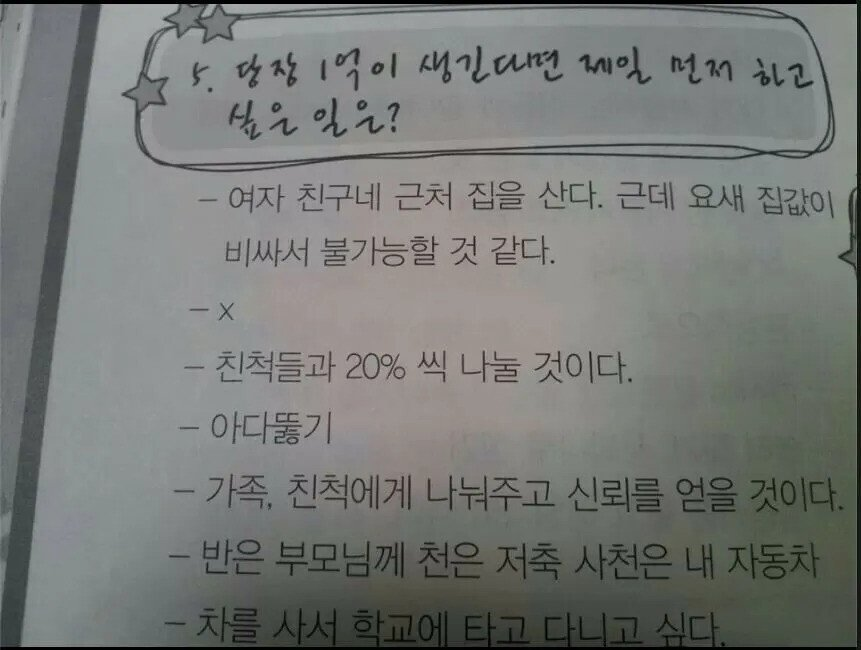 5. 당장 1억이 생긴다면 제일 먼저 하고
싶은 일은?
- 여자 친구네 근처 집을 산다. 근데 요새 집값이
비싸서 불가능할 것 같다.
- x
- 친척들과 20% 씩 나눌 것이다.
- 아다뚫기
- 가족, 친척에게 나눠주고 신뢰를 얻을 것이다.
- 반은 부모님께 천은 저축 사천은 내 자동차
- 차를 사서 학교에 타고 다니고 싶다.